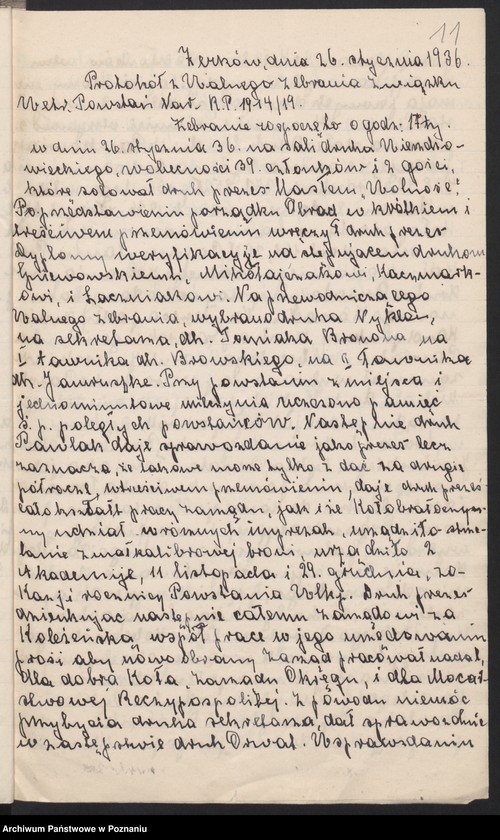 11
Żerków, dnia 26. stycznia 1936.
Protokół z Walnego Zebrania Związku
Wetr. Powstań Nar. R.P. 1914/19.
Zebranie rozpoczęto o godz: 17ty.
w dniu 26. stycznia 36. na sali druha Niendzo-
wieckiego, w obecności 39. członków i 2 gości,
które solował druh prezes Hasłem, Wolność!
Po przedstawieniu porządku Obrad w krótkiem i
treściwem przemówieniu wręczył druh prezes
dyplomy weryfikacyje następującem druhom
Gniewowskiemu, Mikołajczakowi, Kaczmark-
owi, i Łaczniakowi. Na przewodniczącego
Walnego zebrania, wybrano druha Nykla,
na sekretarza, dh. Tomiaka Bronona, na
I Ławnika dh. Browskiego, na II Ławnika
dh. Januszke. Przy powstaniu z miejsca i
jednominutowe milczynia uczczono pamięć
ś. p. poległych powstańców. Następnie druh
Pawlak daje sprawozdanie jako prezes lecz
zaznacza, że takowe może tylko z dać za drugie
półrocze, w treściwem przemówieniu, daje druh prezes
cało kształt pracy zarządu, jak i że Koło brało czyn-
ny udział w różnych imprezah, urządziło strze-
lanie z małkalibrowej broni, urządziło 2
Akademije, 11 listopada i 29. grudnia, zo-
kazji rocznicy Powstania Wlkp. Druh prezes
dziękując następnie całemu zarządowi za
Koleżeńską współ prace w jego urzędowaniu
prosi aby nowo obrany zarząd pracował nadal,
dla dobra Koła, zarządu Okręgu, i dla Mocar-
stwowej Rzeczypospolitej. Z powodu niemoc
przybycia druha sekretarza, dał sprawozdnie
w zastępstwie druh Orwat. W sprawozdaniu
Archiwum Państwowe w Poznaniu